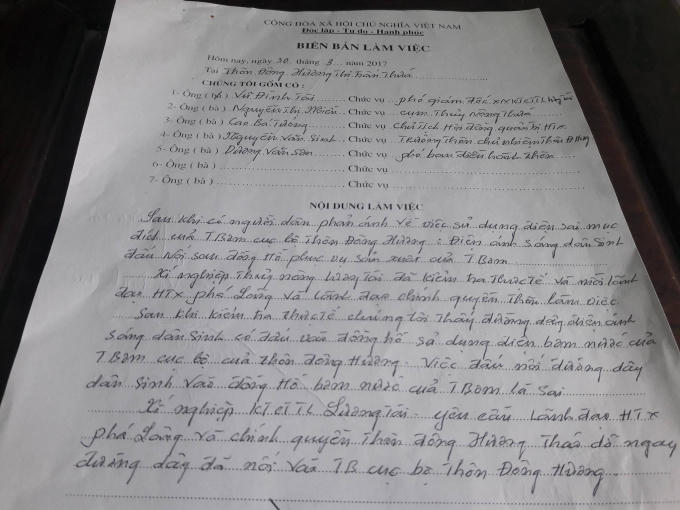 CỘNG HÒA XÃ HỘI CHỦ NGHĨA VIỆT NAM
Độc lập - Tự do - Hạnh phúc
BIÊN BẢN LÀM VIỆC
Hôm nay, ngày 30 tháng 3 năm 2017
Tại Thôn Đông Hương Thị trấn Thứa
CHÚNG TÔI GỒM CÓ :
1- Ông ( bà ) Vũ Đình Tài Chức vụ phó giám đốc XNKTCTTL
2- Ông ( bà ) Nguyễn Thị Chức vụ cụm Thủy nông Thứa
3- Ông ( bà ) Cao Bá Tường Chức vụ Chủ tịch Hội đồng quản trị HTX
4- Ông ( bà ) Nguyễn Văn Sinh Chức vụ Trưởng Thôn chủ nhiệm Thôn Đ Hương
5- Ông ( bà ) Dương Văn Sơn Chức vụ phó ban điều hành thôn
6- Ông ( bà ) Chức vụ
7- Ông ( bà ) Chức vụ
NỘI DUNG LÀM VIỆC
Sau khi có người dân phản ánh về việc sử dụng điện sai mục
đích của TBơm cục bộ thôn Đông Hương : Điện ánh sáng dân sinh
đấu nối sau đồng hồ phục vụ sản xuất của TBơm
Xí nghiệp thủy nông Lương Tài đã kiểm tra thực tế và mời lãnh
đạo HTX phá Lãng và lãnh đạo chính quyền Thôn làm việc
Sau khi kiểm tra thực tế chúng tôi thấy đường dây điện ánh
sáng dân sinh có đấu vào đồng hồ sử dụng điện bơm nước của
TBơm cục bộ của thôn đông Hương. Việc đấu nối đường dây
dân sinh vào đồng hồ bơm nước của TBơm là sai
Xí nghiệp KTCTTL Lương Tài yêu cầu Lãnh đạo HTX
phá Lãng và chính quyền thôn đông Hương tháo dỡ ngay
đường dây đã nối vào TB cục bộ thôn Đông Hương